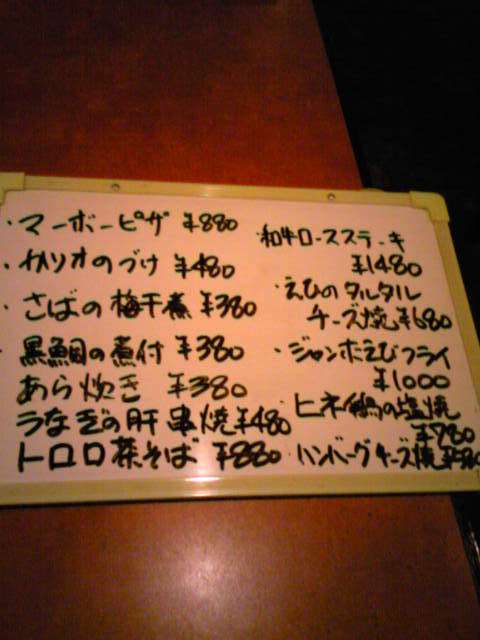 ・マーボーピザ ¥880
・カツオのづけ ¥480
・さばの梅干煮 ¥380
・黒鯛の煮付 ¥380
あら炊き ¥380
うなぎの肝串焼¥480
トロロ茶そば ¥880
・和牛ロースステーキ
¥1480
・えびのタルタル
チーズ焼¥680
・ジャンボえびフライ
¥1000
・ヒネ鶏の塩焼
¥780
・ハンバーグチーズ焼